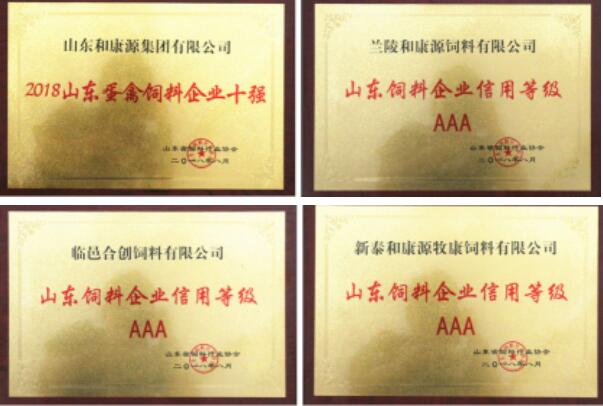 山东和康源集团有限公司
2018山东蛋禽饲料企业十强
山东省饲料行业协会
二〇一八年八月
兰陵和康源饲料有限公司
山东饲料企业信用等级
AAA
山东省饲料行业协会
二〇一八年八月
临邑合创饲料有限公司
山东饲料企业信用等级
AAA
山东省饲料行业协会
二〇一八年八月
新泰和康源牧康饲料有限公司
山东饲料企业信用等级
AAA
山东省饲料行业协会
二〇一八年八月